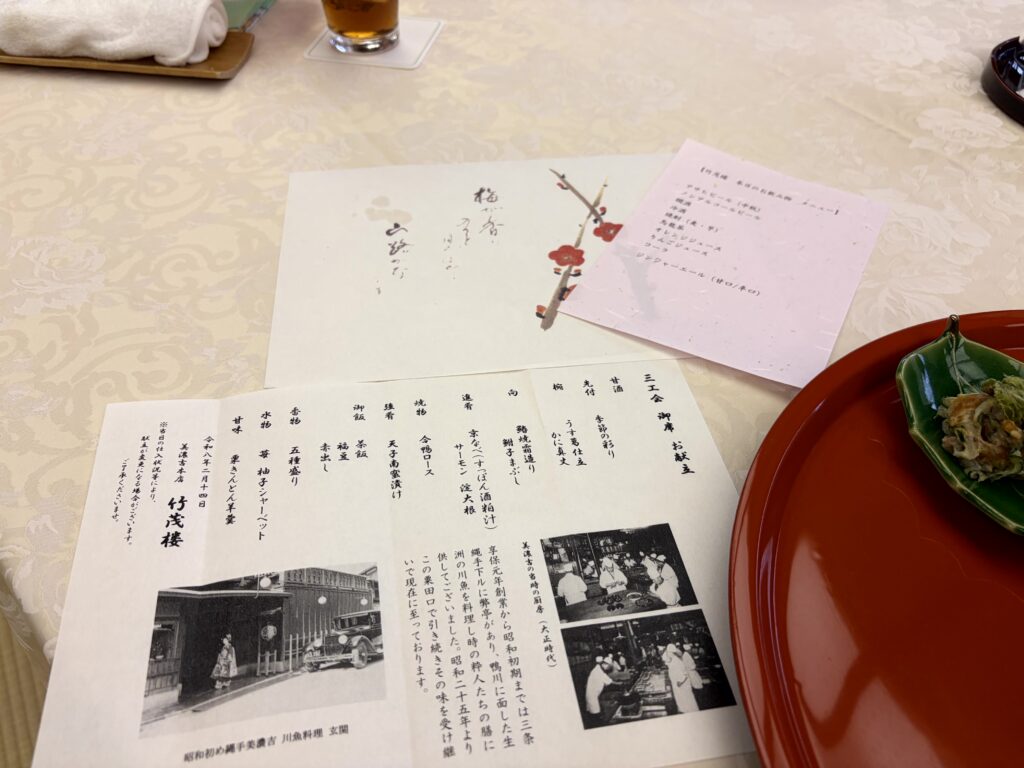 【竹茂楼 本日のお飲み物 メニュー】
アサヒビール（中瓶）
ノンアルコールビール
燗酒
冷酒
焼酎（麦・芋）
烏龍茶
オレンジジュース
りんごジュース
コーラ
ジンジャーエール（甘口/辛口）
梅が香に
山路かな
三工会 御席 お献立
甘酒
先付 季節の彩り
椀 うす葛仕立
かに真丈
向 鮹焼霜造り
鯛子まぶし
進肴 京なべ（すっぽん酒粕汁）
サーモン 淀大根
焼物 合鴨ロース
強肴 天子南蛮漬け
御飯 茶飯
福豆
赤出し
香物 五種盛り
水物 苺 柚子シャーベット
甘味 栗きんとん羊羹
令和八年二月十四日
美濃吉本店 竹茂楼
※当日の仕入状況等により、
献立が変更になる場合がございます。
ご了承くださいませ。
美濃吉の当時の厨房（大正時代）
享保元年創業から昭和初期までは三条
縄手下ルに弊亭があり、鴨川に面した生
洲の川魚を料理し時の粋人たちの膳に
供してございました。昭和二十五年より
この粟田口で引き続きその味を受け継
いで現在に至っております。
昭和初め縄手美濃吉 川魚料理 玄関